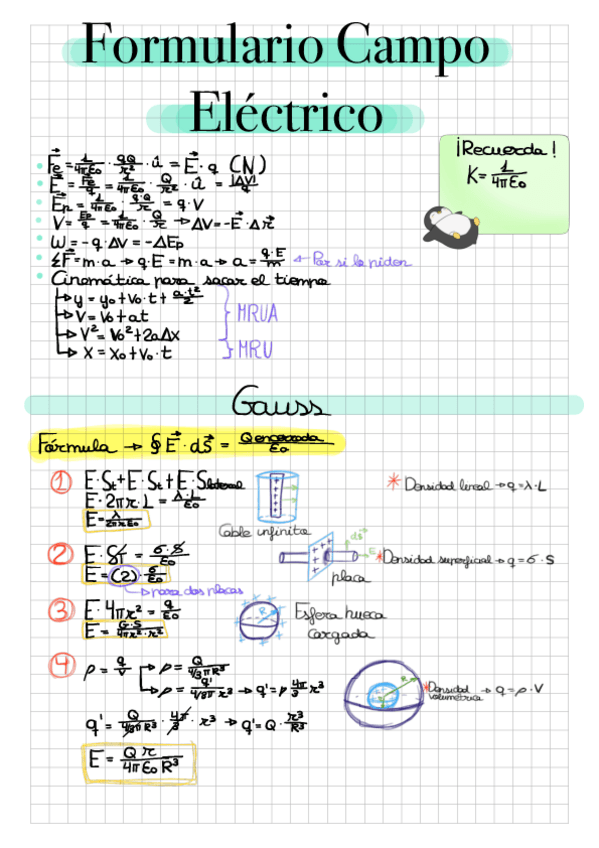 Formulario Campo
Eléctrico
¡Recuerda!
K = 1/4πε₀
F⃗e = 1/4πε₀ · qQ/r² · û = E⃗ · q (N)
E⃗ = F⃗e/q = 1/4πε₀ · Q/r² · û = |ΔV|/q
Ep = 1/4πε₀ · q·Q/r = q·V
V = Ep/q = 1/4πε₀ · Q/r → ΔV = -E⃗ · Δr⃗
W = -q·ΔV = -ΔEp
ΣF⃗ = m·a → q·E = m·a → a = q·E/m ← Por si la piden
Cinemática para sacar el tiempo
→ y = y₀ + v₀·t + a·t²/2
→ V = V₀ + at
→ V² = V₀² + 2aΔx
MRUA
→ X = X₀ + V₀·t
MRU
Gauss
Fórmula → ∮E⃗ · dS⃗ = Q encerrada/ε₀
① E·St + E·St + E·Slateral
E·2πr·L = λ·L/ε₀
E = λ/2πrε₀
Cable infinito
* Densidad lineal → q = λ·L
② E·ST = σ·S/ε₀
E = (2)·σ/ε₀
→ para dos placas
dS⃗
E
placa
* Densidad superficial → q = σ·S
③ E·4πr² = q/ε₀
E = σ·S/4πr²·r²
R
Esfera hueca
cargada
④ ρ = q/V → ρ = Q/4/3πR³
→ ρ = q'/4/3π r³ → q' = ρ 4π/3 r³
q' = Q/4/3πR³ · 4π/3 · r³ → q' = Q · r³/R³
E = Q r/4πε₀ R³
R
r
* Densidad volumétrica → q = ρ·V